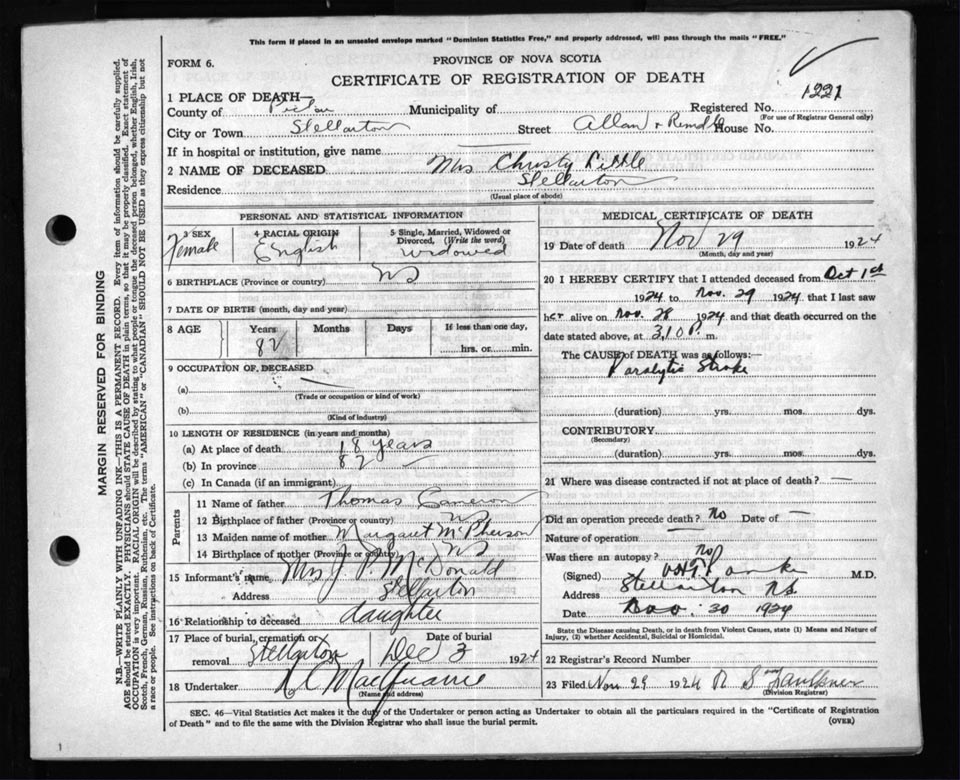 This form if placed in an unsealed envelope marked "Dominion Statistics Free," and properly addressed, will pass through the mails "FREE."
FORM 6.
PROVINCE OF NOVA SCOTIA
CERTIFICATE OF REGISTRATION OF DEATH
1221
1 PLACE OF DEATH—
County of Pictou Municipality of Registered No.
(For use of Registrar General only)
City or Town Stellarton Street Allan & House No.
If in hospital or institution, give name
2 NAME OF DECEASED Mrs Christy Little
Residence Stellarton
(Usual place of abode)
PERSONAL AND STATISTICAL INFORMATION
3 SEX 4 RACIAL ORIGIN 5 Single, Married, Widowed or Divorced, (Write the word)
Female English Widowed
6 BIRTHPLACE (Province or country) NS
7 DATE OF BIRTH (month, day and year)
8 AGE Years Months Days If less than one day,
82 hrs. or min.
9 OCCUPATION OF DECEASED
(a)
(Trade or occupation or kind of work)
(b)
(Kind of industry)
10 LENGTH OF RESIDENCE (in years and months)
(a) At place of death 18 years
(b) In province 82 —
(c) In Canada (if an immigrant)
Parents
11 Name of father Thomas Cameron
12 Birthplace of father (Province or country) NS
13 Maiden name of mother Margaret McPherson
14 Birthplace of mother (Province or country) NS
15 Informant's name Mrs J P McDonald
Address Stellarton
16 Relationship to deceased daughter
17 Place of burial, cremation or removal Stellarton Date of burial Dec 3 1924
18 Undertaker
(Name and address)
MEDICAL CERTIFICATE OF DEATH
19 Date of death Nov 29 1924
(Month, day and year)
20 I HEREBY CERTIFY that I attended deceased from Oct 1st
1924 to Nov. 29 1924 that I last saw
her alive on Nov. 28 1924 and that death occurred on the
date stated above, at 3.10 P. m.
The CAUSE of DEATH was as follows:—
Paralytic Stroke
(duration) yrs. mos. dys.
CONTRIBUTORY
(Secondary)
(duration) yrs. mos. dys.
21 Where was disease contracted if not at place of death? —
Did an operation precede death? No Date of —
Nature of operation —
Was there an autopsy? No
(Signed) M.D.
Address Stellarton N.S.
Date 30 1924
State the Disease causing Death, or in death from Violent Causes, state (1) Means and Nature of Injury, (2) whether Accidental, Suicidal or Homicidal.
22 Registrar's Record Number
23 Filed Nov. 29 1924 R S Faulkner
(Division Registrar)
SEC. 46—Vital Statistics Act makes it the duty of the Undertaker or person acting as Undertaker to obtain all the particulars required in the "Certificate of Registration
of Death" and to file the same with the Division Registrar who shall issue the burial permit. (OVER)
MARGIN RESERVED FOR BINDING
N.B.—WRITE PLAINLY WITH UNFADING INK—THIS IS A PERMANENT RECORD. Every item of information should be carefully supplied.
AGE should be stated EXACTLY. PHYSICIANS should STATE CAUSE OF DEATH in plain terms, so that it may be properly classified. Exact statement of
OCCUPATION is very important. RACIAL ORIGIN will be described by stating to what people or tongue the deceased person belonged, whether English, Irish,
Scotch, French, German, Russian, Ruthenian, etc. The terms "AMERICAN" or "CANADIAN" SHOULD NOT BE USED as they express citizenship but not
a race or people. See instructions on back of Certificate.